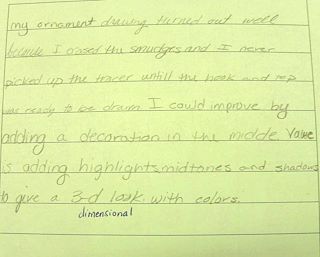 my ornament drawing turned out well
because I erased the smudges and I never
picked up the tracer untill the hook and top
was ready to be drawn I could improve by
adding a decoration in the middle. Value
is adding highlights midtones and shadows
to give a 3-d look with colors.
dimensional